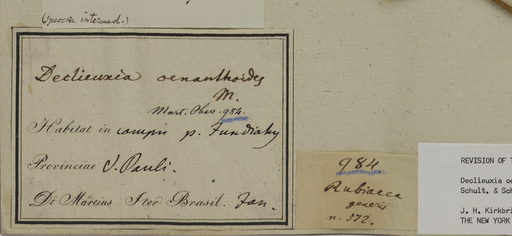 (specim. intermed.)
Declieuxia oenanthoides
M.
Mart. Obsv. 984.
Habitat in campis p. Jundiahy
Provinciae S. Pauli.
Dr. Martius Iter Brasil. Jan.
984
Rubiacea
generis
n. 572.
REVISION OF T
Declieuxia oe
Schult. & Sch
J. H. Kirkbri
THE NEW YORK